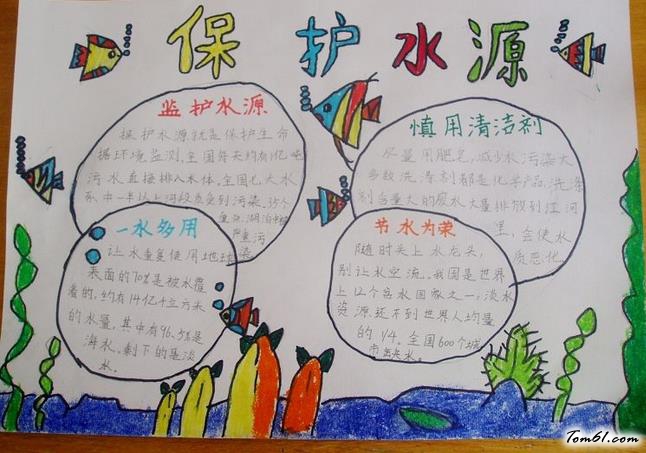 保护水源
监护水源
保护水源就是保护生命
据环境监测,全国每天约有1亿吨
污水直接排入水体。全国七大水
系中一半以上河段水质受到污染。35个
重点湖泊中
严重污
染
慎用清洁剂
尽量用肥皂,减少水污染大
多数洗涤剂都是化学产品,洗涤
剂含量大的废水大量排放到江河
里,会使水
质恶化
一水多用
让水重复使用地球
表面的70%是被水覆
着的,约有14亿4立方千米
的水量,其中有96.5%是
海水。剩下的是淡
水。
节水为荣
随时关上水龙头,
别让水空流。我国是世界
上12个贫水国家之一,淡水
资源还不到世界人均量
的1/4。全国600个城
市缺水。
Tom61.com